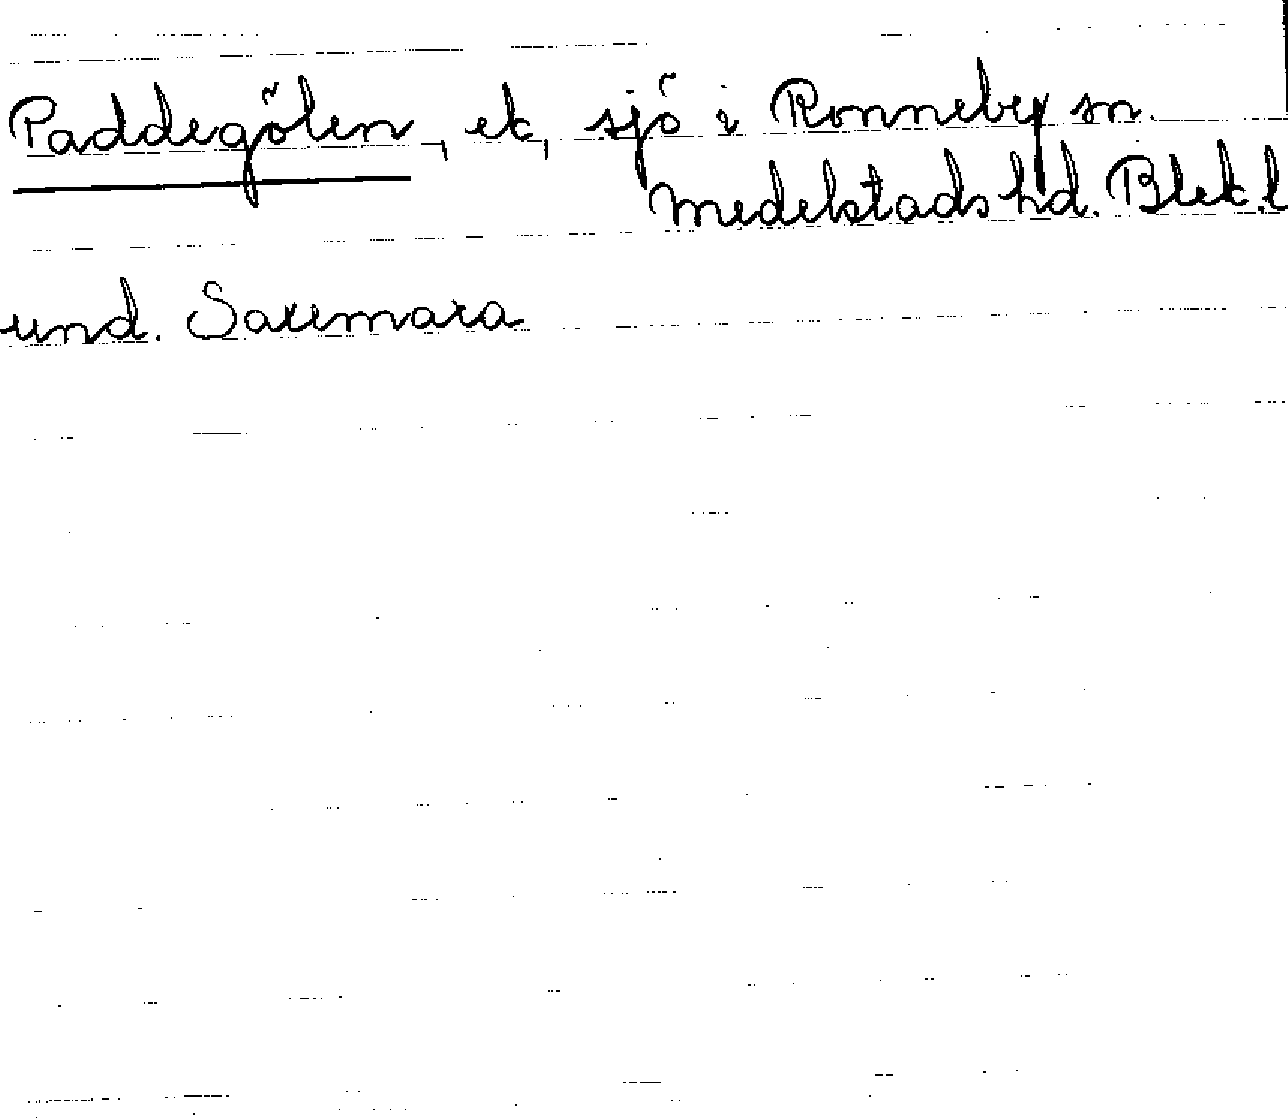 Paddegölen, ek, sjö i Ronneby sn.
Medelstads hd. Blek. l
und. Saxemara